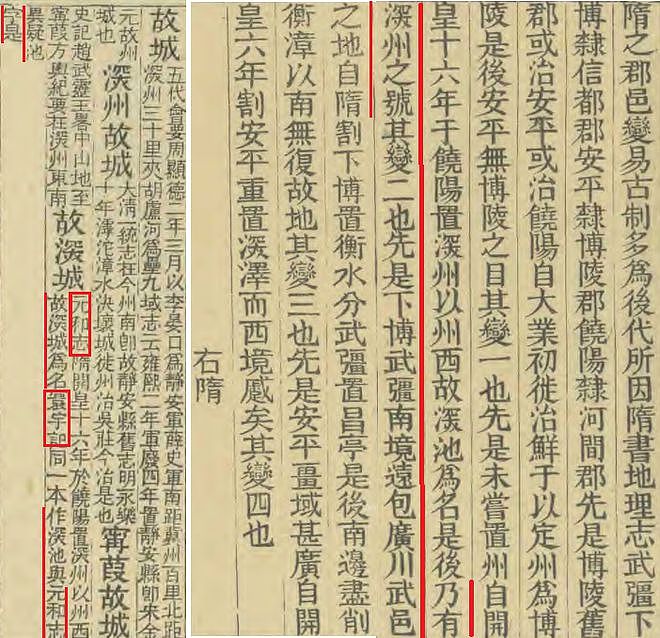 隋之郡邑變易古制多爲後代所因隋書地理志武彊下
博隸信都郡安平隸博陵郡饒陽隸河間郡先是博陵舊
郡或治安平或治饒陽自大業初徙治鮮于以定州爲博
陵是後安平無博陵之目其變一也先是未嘗置州自開
皇十六年于饒陽置深州以州西故深池爲名是後乃有
深州之號其變二也先是下博武彊南境遠包廣川武邑
之地自隋割下博置衡水分武彊置昌亭是後南邊盡削
衡漳以南無復故地其變三也先是安平畺域甚廣自開
皇六年割安平重置深澤而西境蹙矣其變四也
右隋
故城
五代會要周顯德二年三月以李晏口爲靜安軍南距冀州百里北距
深州三十里夾胡盧河爲壘九域志云雍熙二年軍廢四年置靜安縣卽宋金
元故州
城也
深州故城
大清一統志在今州南卽故靜安縣舊志明永樂
十年滹沱漳水決壞城徙州治吳莊今治是也
寗葭故城
史記趙武靈王畧中山地至
寗葭方輿紀要在深州東南
故深城
元和志隋開皇十六年於饒陽置深州以州西
故深城爲名寰宇記同一本作深池與元和志
異疑池
字是